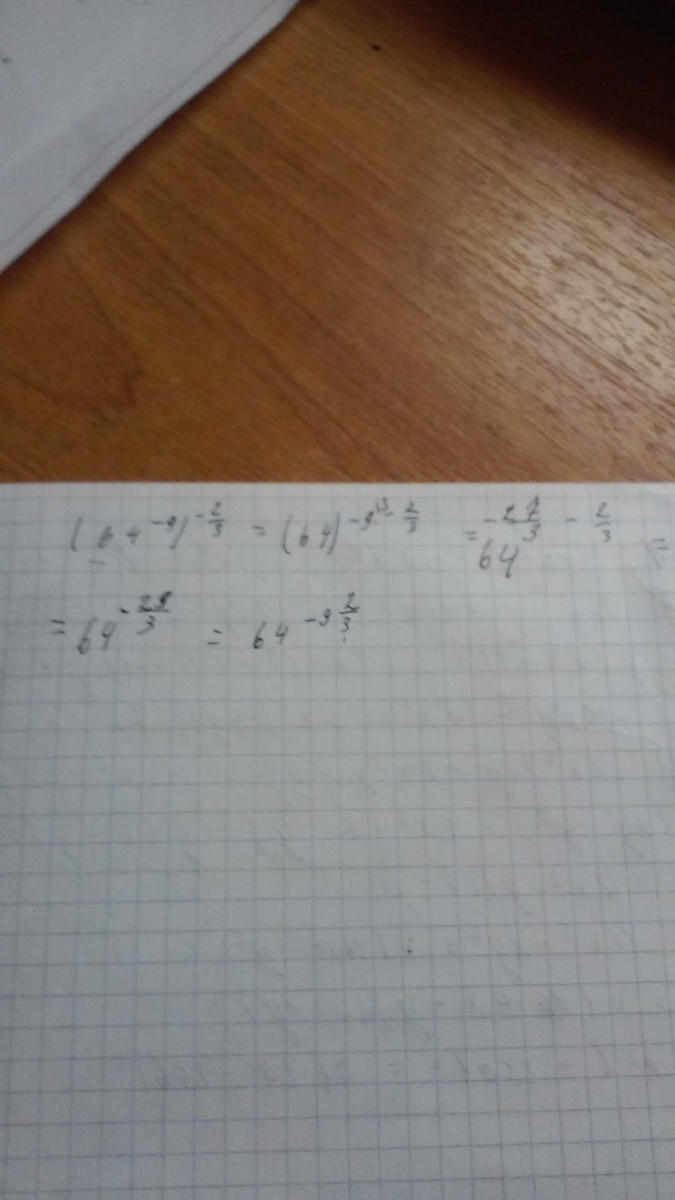 (64^{-9})^{-\frac{2}{3}} = (64)^{-9^{\backslash 3} - \frac{2}{3}} = 64^{-\frac{27}{3} - \frac{2}{3}} =
= 64^{-\frac{29}{3}} = 64^{-9\frac{2}{3}}